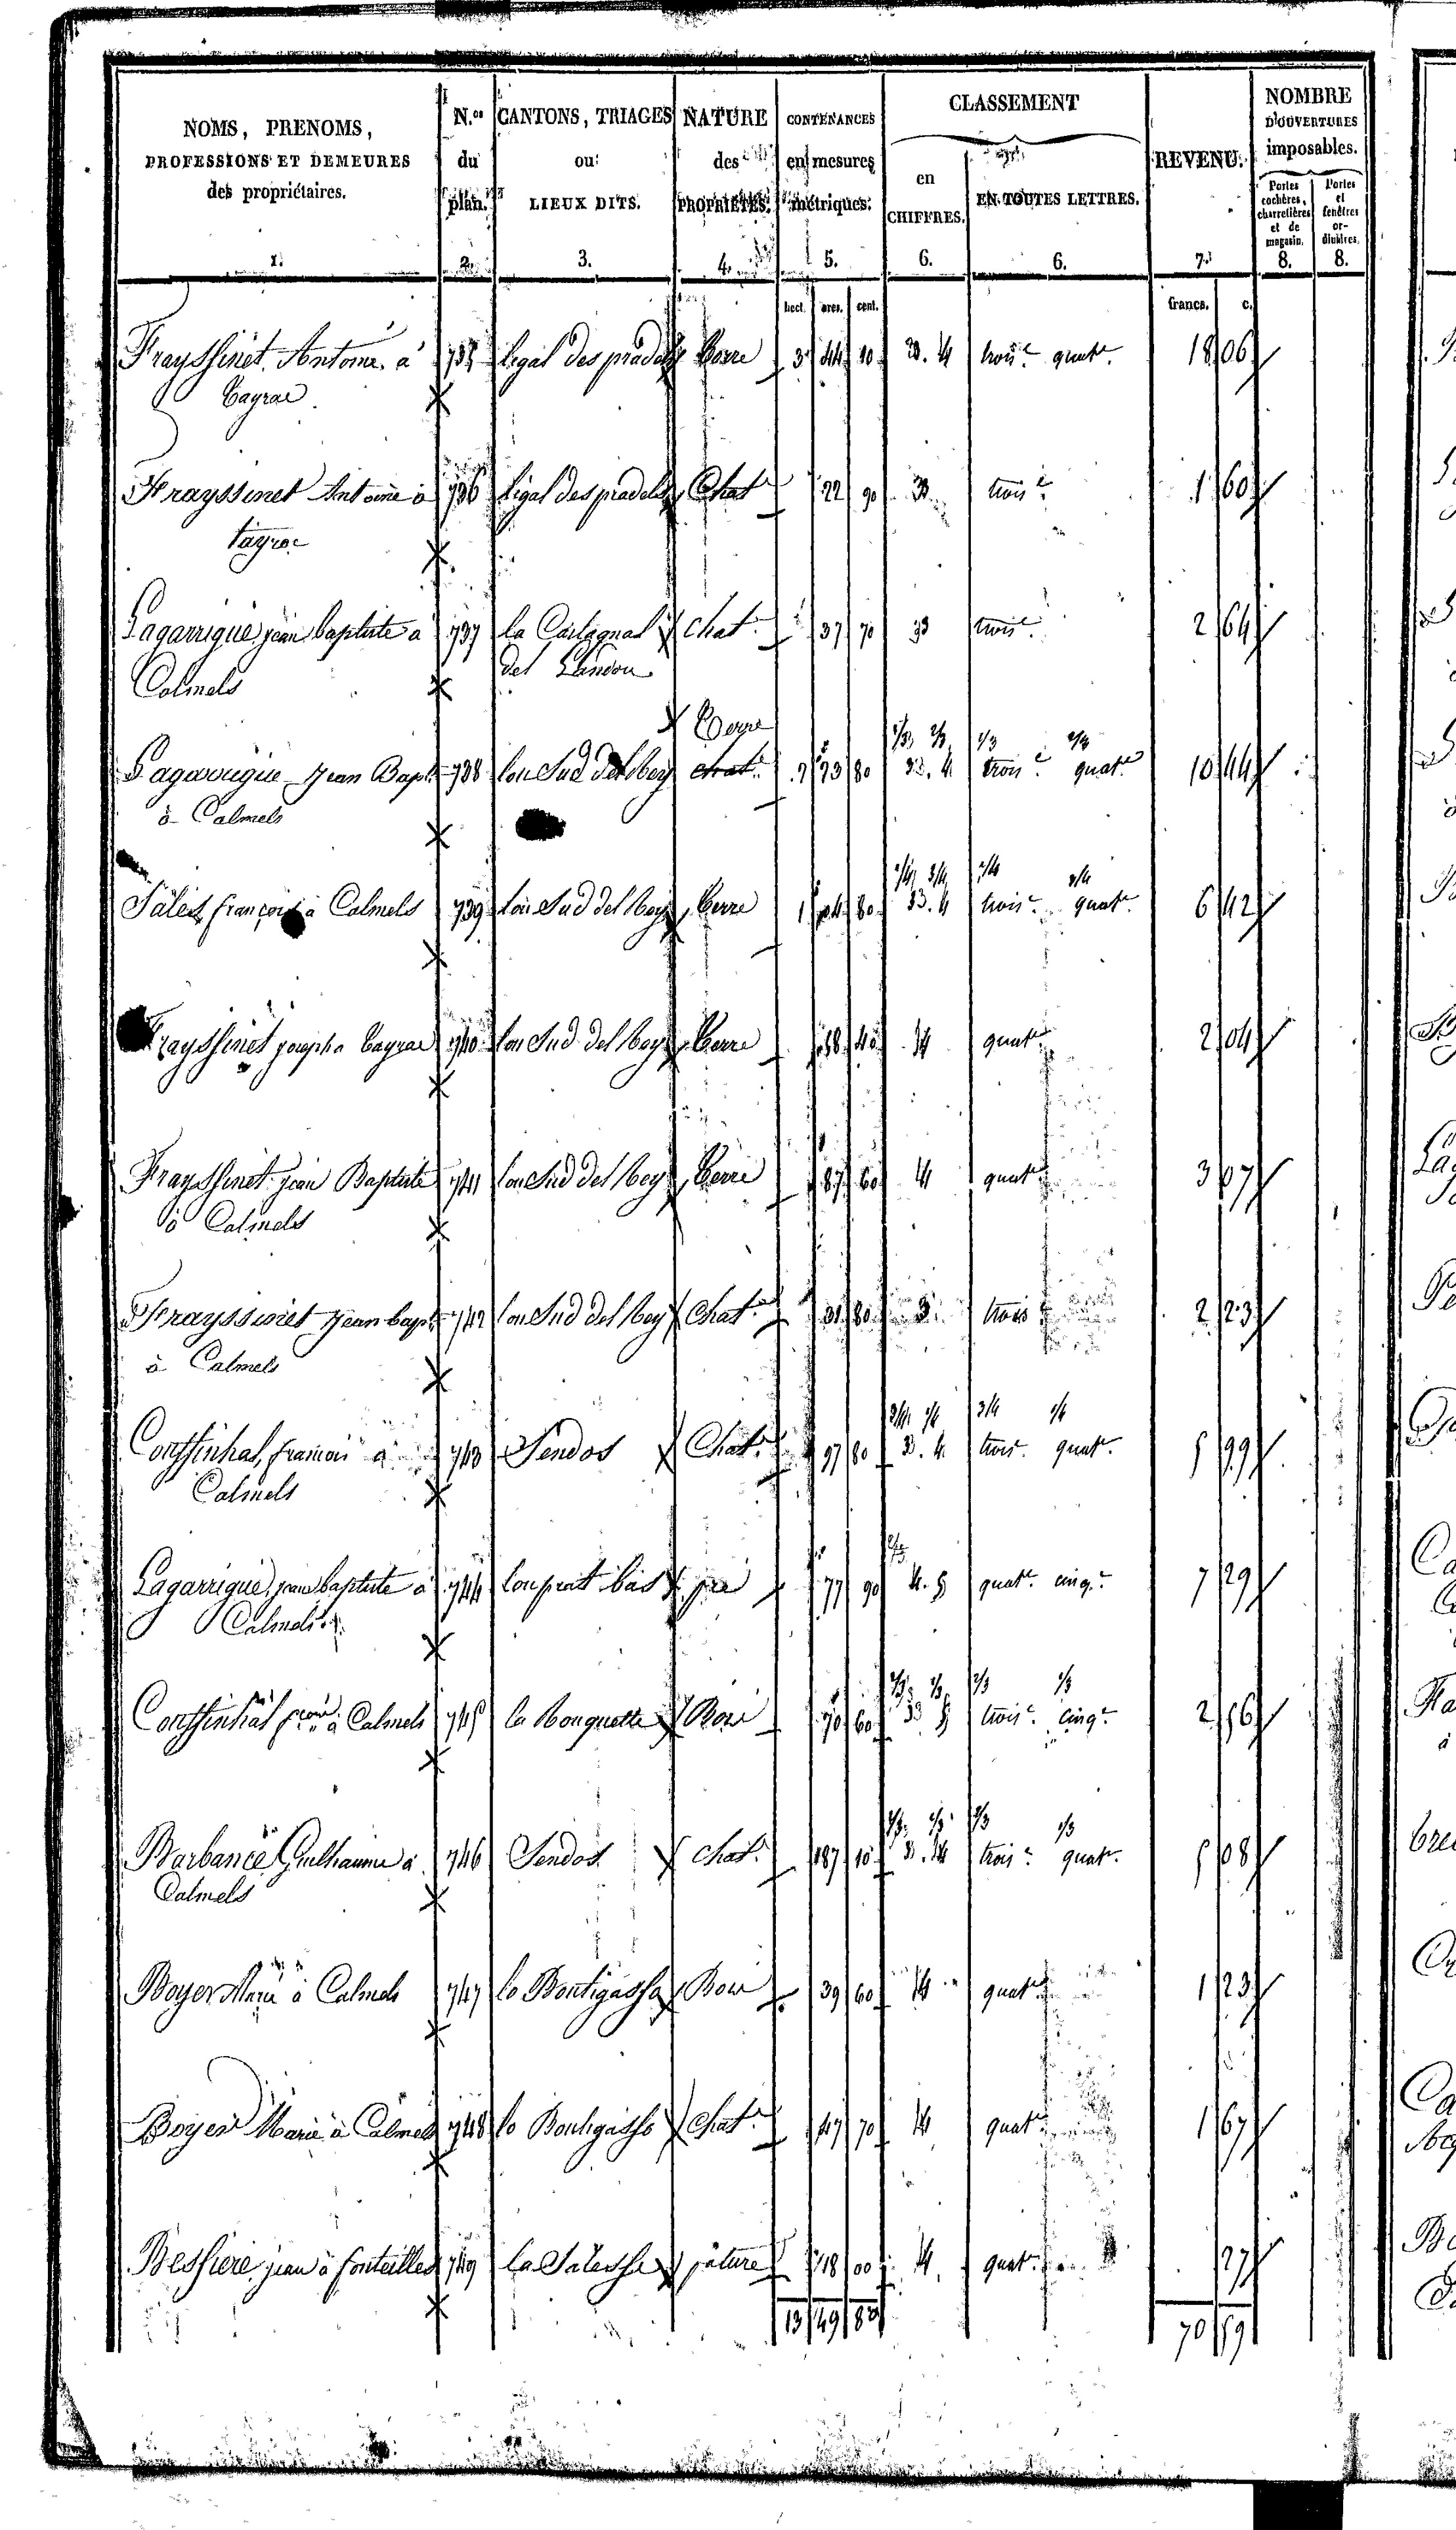 NOMS, PRENOMS, PROFESSIONS ET DEMEURES des propriétaires. 1.
N.os du plan. 2.
CANTONS, TRIAGES ou LIEUX DITS. 3.
NATURE des PROPRIÉTÉS. 4.
CONTENANCES en mesures métriques. 5.
CLASSEMENT
en CHIFFRES. 6.
EN TOUTES LETTRES. 6.
REVENU. 7.
NOMBRE D'OUVERTURES imposables.
Portes cochères, charretières et de magasin. 8.
Portes et fenêtres ordinaires. 8.
hect. ares. cent. francs. c.
Frayssinet Antoine à 735 ligal des pradels terre 3 44 10 3. 4 trois.e quat.e 18 06
Cayrac
Frayssinet Antoine à 736 ligal des pradels Chat 22 90 3 trois.e 1 60
Cayrac
Lagarrigue jean baptiste à 737 la chat. 37 70 3 trois.e 2 64
Calmels del
terre 1/3 2/3 1/3 2/3
Lagarrigue Jean Bapt. 738 lou Sud del chat. 73 80 3. 4 trois.e quat.e 10 44
à Calmels
1/4 3/4 1/4 3/4
françois à Calmels 739 lou Sud del terre 1 64 80 3. 4 trois.e quat.e 6 42
Frayssinet joseph à Cayrac 740 lou Sud del terre 58 40 4 quat.e 2 04
Frayssinet jean Baptiste 741 lou Sud del terre 87 60 4 quat.e 3 07
à Calmels
Frayssinet Jean bapt. 742 lou Sud del Chat. 31 80 3 trois.e 2 23
à Calmels
3/4 1/4 3/4 1/4
françois à 743 Sendos Chat. 97 80 3. 4 trois.e quat.e 5 99
Calmels
Lagarrigue jean baptiste à 744 lou prat bas pré 77 90 4. 5 quat.e cinq.e 7 29
Calmels
2/3 1/3 2/3 1/3
à Calmels 745 la Rouquette Bois 70 60 3 5 trois.e cinq.e 2 56
2/3 1/3
Guilhaume à 746 Sendos chat. 87 10 3. 4 trois.e quat.e 5 08
Calmels
Boyer Marie à Calmels 747 Bois 39 60 4 quat.e 1 23
Boyer Marie à Calmels 748 Chat. 47 70 4 quat.e 1 67
Bessiere jean à fonteilles 749 pâture 18 00 4 quat. 27
13 49 80 70 59